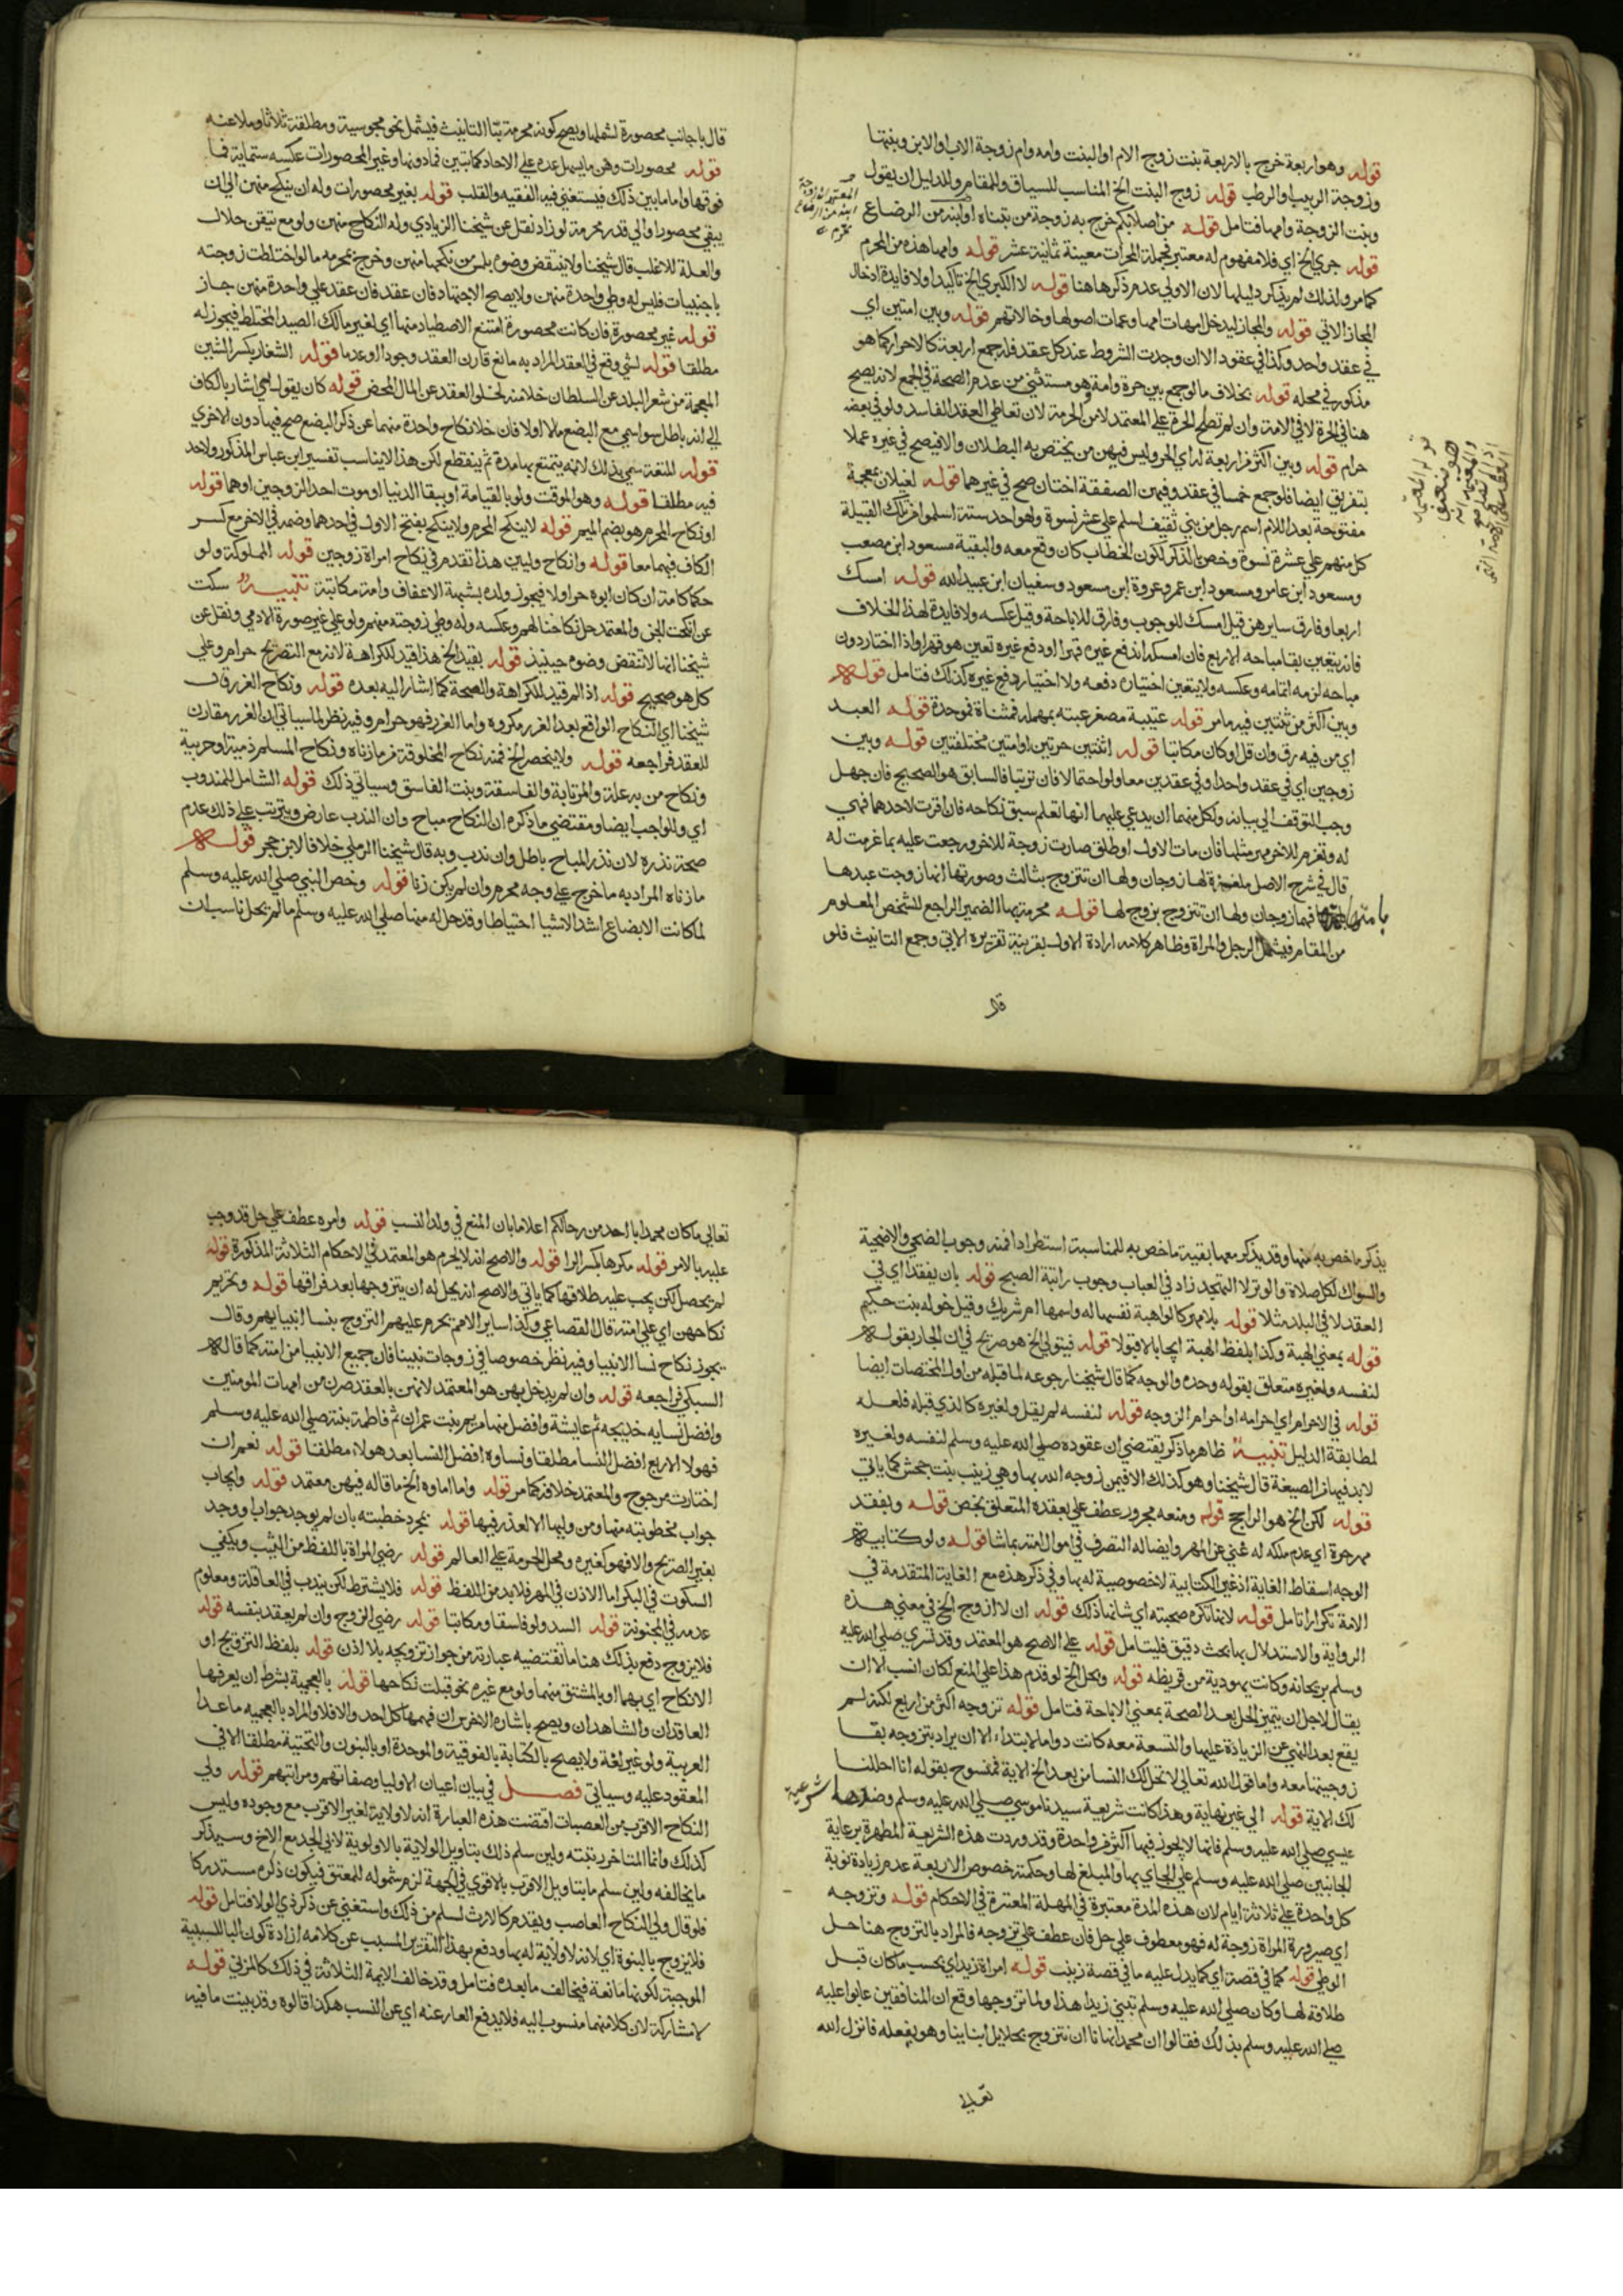 قوله وهو اربعة خرج بالاربعة بنت زوج الام او البنت وامه وام زوجة الاب او الابن وبنتها
وزوجة الربيب والرطب قوله زوج البنت الخ المناسب للسياق والمقام والدليل ان يقول
وبنت الزوجة وامها فتامل قوله من اصلابكم خرج به زوجة من تبناه او ابنه من الرضاع
قوله جري الخ اي فلا مفهوم له معتبر فجملة المحرمات معينة ثمانية عشر قوله وامها هذه من المحرم
كما مر ولذلك لم يذكر دليلها لان الاولي عدم ذكرها هنا قوله لا الكبري الخ تاكيد او لا فايدة ادخال
المجاز الاتي قوله والمجاز ليدخل امهات امها وعمات اصولها وخالاتهم قوله وبين امتين اي
في عقد واحد وكذا في عقود الا ان وجدت الشروط عند كل عقد فله جمع اربعة كالاحرار كما هو
مذكور في محله قوله بخلاف ما لو جمع بين حرة وامة وهو مستثني من عدم الصحة في الجمع لانه يصح
هنا في الحرة لا في الامة وان لم تصلح الحرة علي المعتمد لامن الحرمة لان تعاطي العقد الفاسد ولو في بعضه
حرام قوله وبين اكثر من اربعة له اي الحر وليس فيهن من يختص به البطلان والا فيصح في غيره عملا
بتفريق ايضا فلو جمع خمسا في عقد وفيهن الصفقة اختان صح في غيرهما قوله لغيلان بمعجمة
مفتوحة بعدها لام اسم رجل من بني ثقيف اسلم علي عشر نسوة وهو احد ستة اسلموا من تلك القبيلة
كل منهم علي عشرة نسوة وخص بالذكر لكون الخطاب كان وقع معه والبقية مسعود ابن مصعب
ومسعود ابن عامر ومسعود ابن عمرو عروة ابن مسعود وسفيان ابن عبيد الله قوله امسك
اربعا وفارق سايرهن قيل امسك للوجوب وفارق للاباحة وقيل عكسه ولا فايدة لهذا الخلاف
فانه يتعين بقا مباحه الاربع فان امسكه اندفع غيره قهرا او دفع غيره تعين هو قهرا واذا اختار دون
مباحه لزمه اتمامه وعكسه ولا يتعين اختياره دفعه ولا اختيار دفع غيره كذلك فتامل قوله
وبين اكثر من ثنتين فيه ما مر قوله عتيبة مصغر عتبه بمهملة فمثناة فموحدة قوله العبد
اي من فيه رق وان قل او كان مكاتبا قوله اثنتين حرتين او امتين مختلفتين قوله وبين
زوجين اي في عقد واحد او في عقدين معا ولو احتمالا فان ترتبا فالسابق هو الصحيح فان جهل
وجب التوقف الي بيانه ولكل منهما ان يدعي عليها انها تعلم سبق نكاحه فان اقرت لاحدهما فهي
له وتغرم للاخر مهر مثلها فان مات الاول او طلق صارت زوجة للاخر ورجعت عليه بما غرمت له
قال في شرح الاصل ملغزة لها زوجان ولها ان تتزوج بثالث وصورتها انها زوجت عبدها
بامتها فهما زوجان ولها ان تتزوج بزوج لها قوله محرمة بها الضمير الراجع للشخص المعلوم
من المقام فيشمل الرجل والمراة وظاهر كلامه ارادة الاول بقرينة تقريره الاتي وجمع التانيث فلو
قال
قال باجانب محصورة لشملها ويصح كونه محرمة بتا التانيث فيشمل نحو مجوسية ومطلقة ثلاثا وملاعنه
قوله محصورات وهن ما يسهل عده علي الاحاد كمائتين فما دونها وغير المحصورات عكسه ستماية فما
فوقها واما ما بين ذلك فيستفتي فيه الفقيه والقلب قوله بغير محصورات وله ان ينكح منهن الي ان
يبقي محصورا والي قدر محرمة لو زاد نقل عن شيخنا الزيادي وله النكاح منهن ولو مع تيقن حلال
والعلة للاغلب قال شيخنا ولا ينتقض وضوه بلمس من نكحها منهن وخرج بمحرمه ما لو اختلطت زوجته
باجنبيات فليس له وطي واحدة منهن ولا يصح الاجتهاد فان عقد فان عقد علي واحدة منهن جاز
قوله غير محصورة فان كانت محصورة امتنع الاصطياد منها اي لغير مالك الصيد المختلط فيجوز له
مطلقا قوله لشي وقع في العقد المراد به مانع قارن العقد وجودا او عدما قوله الشغار بكسر الشين
المعجمة من شغر البلد عن السلطان خلا منه لخلو العقد عن المال المحض قوله كان يقول الخ اشار بالكاف
الي انه باطل سوا سمي مع البضع مالا او لا فان خلا نكاح واحدة منهما عن ذكر البضع صح فيها دون الاخري
قوله المتعة سمي بذلك لانه يتمتع بها مدة ثم ينقطع لكن هذا لا يناسب تفسير ابن عباس المذكور ولا حد
فيه مطلقا قوله وهو الموقت ولو بالقيامة او ببقا الدنيا او موت احد الزوجين او هما قوله
او نكاح المحرم هو بضم الميم قوله لا ينكح المحرم ولا ينكح بفتح الاول في احدهما وضمه في الاخر مع كسر
الكاف فيهما معا قوله وانكاح وليين هذا تقدم في نكاح امراة زوجين قوله المملوكة ولو
حكما كامة ان كان ابوه حرا ولا فيجوز ولده بشبهة الاعفاف وامة مكاتبة تنبيه سكت
عن انكحة الجن والمعتمد حل نكاحنا لهم وعكسه وله وطي زوجته منهم ولو علي غير صورة الادمي ونقل عن
شيخنا انها لا تنقض وضوه حينيذ قوله بقيد الخ هذا قيد للكراهة لانه مع التصريح حرام وعلي
كل هو صحيح قوله اذ المر قيد للكراهة والصحة كما اشار اليه بعده قوله ونكاح الغرر قال
شيخنا اي النكاح الواقع بعد الغرر مكروه واما الغرر فهو حرام وفيه نظر لما سياتي ان الغرر مقارن
للعقد فراجعه قوله ولا ينحصر الخ فمنه نكاح المخلوقة من ماء زناه ونكاح المسلم ذمية او حربية
ونكاح من به علة والمرتابة والفاسقة وبنت الفاسق وسياتي ذلك قوله الشامل للمندوب
اي والواجب ايضا ومقتضي ما ذكره ان النكاح مباح وان الندب عارض ويترتب علي ذلك عدم
صحة نذره لان نذر المباح باطل وان ندب وبه قال شيخنا الرملي خلافا لابن حجر قوله
ما زناه المراد به ما خرج علي وجه محرم وان لم يكن زنا قوله وخص النبي صلي الله عليه وسلم
لما كانت الابضاع اشد الاشيا احتياطا وقد حل له منها صلي الله عليه وسلم ما لم يحل ناسب ان
يذكر ما خص به منها وقد يذكر معها بقية ما خص به للمناسبة استطرادا فمنه وجوب الضحي والاضحية
والسواك لكل صلاة والوتر لا التهجد زاد في العباب وجوب راتبة الصبح قوله بان يفقد اي في
العقد لا في البلد مثلا قوله بلا مهر كالواهبة نفسها له واسمها ام شريك وقيل خوله بنت حكيم
قوله بمعني الهبة وكذا بلفظ الهبة ايجابا لا قبولا قوله فيتولي الخ هو صريح في ان الجار بقوله
لنفسه ولغيره متعلق بقوله وحده والوجه كما قال شيخنا رجوعه لما قبله من اول المختصات ايضا
قوله في الاحرام اي احرامه او احرام الزوجه قوله لنفسه لم يقل ولغيره كالذي قبله فلعله
لمطابقة الدليل تنبيه ظاهر ما ذكر يقتضي ان عقوده صلي الله عليه وسلم لنفسه ولغيره
لابد فيها من الصيغة قال شيخنا وهو كذلك الا فيمن زوجه الله بها وهي زينب بنت جحش كما ياتي
قوله لكن الخ هو الراجح قوله ومنعه مجرور عطف علي بعقده المتعلق بخص قوله وبفقد
مهر حرة اي عدم ملكه له غني عن المهر وايضا له التصرف في اموال امته بما شا قوله ولو كتابية
الوجه اسقاط الغاية اذ غير الكتابية لا خصوصية له بها وفي ذكر هذه مع الغاية المتقدمة في
الامة تكرار تامل قوله لانها تكره صحبته اي شانها ذلك قوله ان لا ازوج الخ في معني هذه
الرواية والاستدلال بها بحث دقيق فليتامل قوله علي الاصح هو المعتمد وقد تسري صلي الله عليه
وسلم بريحانه وكانت يهودية من قريظه قوله ويحل الخ لو قدم هذا علي المنع لكان انسب الا ان
يقال لاجل ان يتميز الحل بعد الصحة بمعني الاباحة فتامل قوله تزوجه اكثر من اربع لكنه لم
يقع بعد النهي عن الزيادة عليها والتسعة معه كانت دواما لا ابتداء الا ان يراد بتزوجه بقا
زوجيتها معه واما قول الله تعالي لا تحل لك النسا من بعد الخ الاية فمنسوخ بقوله انا احللنا
لك الاية قوله الي غير نهاية وهذا كانت شريعة سيدنا موسي صلي الله عليه وسلم وضدها شرعية
عيسي صلي الله عليه وسلم فانها لا يجوز فيها اكثر من واحدة وقد وردت هذه الشريعة المطهرة برعاية
الجانبين صلي الله عليه وسلم علي الجاي بها والمبلغ لها وحكمة خصوص الاربعة عدم زيادة نوبة
كل واحدة علي ثلاثة ايام لان هذه المدة معتبرة في المهلة المعتبرة في الاحكام قوله وتزوجه
اي صيرورة المراة زوجة له فهو معطوف علي حل فان عطف علي تزوجه فالمراد بالتزوج هنا حل
الوطي قوله كما في قصة اي كما يدل عليه ما في قصة زينب قوله امراة زيد اي بحسب ما كان قبل
طلاقه لها وكان صلي الله عليه وسلم تبني زيدا هذا ولما تزوجها وقع ان المنافقين عابوا عليه
صلي الله عليه وسلم بذلك فقالوا ان محمدا نهانا ان نتزوج بحلايل ابناينا وهو يفعله فانزل الله
تعالي
تعالي ما كان محمد ابا احد من رجالكم اعلاما بان المنع في ولد النسب قوله وامره عطف علي حل قد وجب
عليه بالامر قوله مكرها بكسر الرا قوله والاصح انه لا يحرم هو المعتمد في الاحكام الثلاثة المذكورة قوله
لم يحصل لكن يجب عليه طلاقها كما ياتي والاصح انه يحل له ان يتزوجها بعد فراقها قوله وتحريم
نكاحهن اي علي امته قال القضاعي وكذا ساير الامم يحرم عليهم التزوج بنسا انبيايهم وقال
يجوز نكاح نسا الانبيا وفيه نظر خصوصا في زوجات نبينا فان جميع الانبيا من امته كما قاله
السبكي فراجعه قوله وان لم يدخل بهن هو المعتمد لانهن بالعقد صرن من امهات المومنين
وافضل نسايه خديجه ثم عايشة وافضل منهما مريم بنت عمران ثم فاطمة بنته صلي الله عليه وسلم
فهولا الاربع افضل النسا مطلقا ونساوه افضل النسا بعد هولاء مطلقا قوله نعم ان
اختارت مرجوح والمعتمد خلافه كما مر قوله واما اماوه الخ ما قاله فيهن معتمد قوله وايجاب
جواب مخطوبته منها ومن وليها الا لعذر فيها قوله بمجرد خطبته بان لم يوجد جواب او وجد
بغير الصريح والا فهو كغيره ومحل الحرمة علي العالم قوله رضي المراة باللفظ من الثيب ويكفي
السكوت في البكر اما الاذن في المهر فلا بد من اللفظ قوله فلا يشترط لكن يندب في العاقلة ومعلوم
عدمه في المجنونة قوله السيد ولو فاسقا ومكاتبا قوله رضي الزوج وان لم يعقد بنفسه قوله
فلا يزوج دفع بذلك هنا ما تقتضيه عبارته من جواز تزويجه بلا اذن قوله بلفظ التزويج او
الانكاح اي بهما او بالمشتق منهما ولو مع غيره نحو قبلت نكاحها قوله بالعجمية بشرط ان يعرفها
العاقدان والشاهدان ويصح باشارة الاخرس ان فهمها كل احد والا فلا والمراد بالعجميه ما عدا
العربية ولو غير لغة ولا يصح بالكتابة بالفوقية والموحدة او بالنون والتحتية مطلقا الا في
المعقود عليه وسياتي فصل في بيان اعيان الاوليا وصفاتهم ومراتبهم قوله ولي
النكاح الاقرب من العصبات اقتضت هذه العبارة انه لا ولاية لغير الاقرب مع وجوده وليس
كذلك وانما المتاخر رتبته ولين سلم ذلك بتاويل الولاية بالاولوية لاني الجد مع الاخ وسيذكر
ما يخالفه ولين سلم ما بتاويل الاقرب بالاقوي في الجهة لزم شموله للمعتق فيكون ذكره مستدركا
فلو قال ولي النكاح العاصب ويقدم كالارث لسلم من ذلك واستغني عن ذكر ذي الولا فتامل قوله
فلا يزوج بالبنوة اي لانه لا ولاية له بها ودفع بهذا التقرير المسبب عن كلامه ارادة كون البا للسببية
الموجبة لكونها مانعة فيخالف ما بعده فتامل وقد خالف الايمة الثلاثة في ذلك كالمزني قوله
لا مشاركة لان كلا منهما منسوب اليه فلا يدفع العار عنه اي عن النسب هكذا قالوه وقد بينت ما فيه